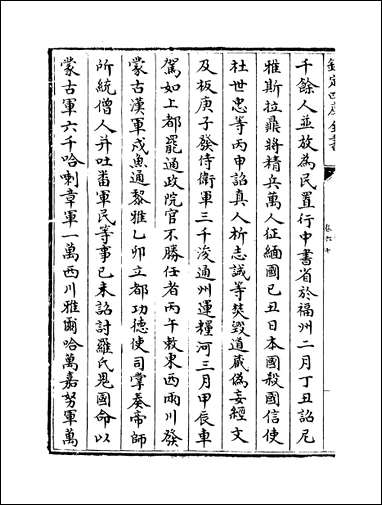 欽定四庫全書
卷六十
千餘人並放為民置行中書省於福州二月丁丑詔尼
雅斯拉鼎將精兵萬人征緬國己丑日本國殺國信使
杜世忠等丙申詔真人祈志誠等焚毀道藏偽妄經文
及板庚子發侍衛軍三千浚通州運糧河三月甲辰車
駕如上都罷通政院官不勝任者丙午敕東西兩川發
蒙古漢軍戍魚通黎雅乙卯立都功德使司掌奏帝師
所統僧人并吐番軍民等事己未詔討羅氏鬼國命以
蒙古軍六千哈喇章軍一萬西川雅爾哈萬嘉努軍萬